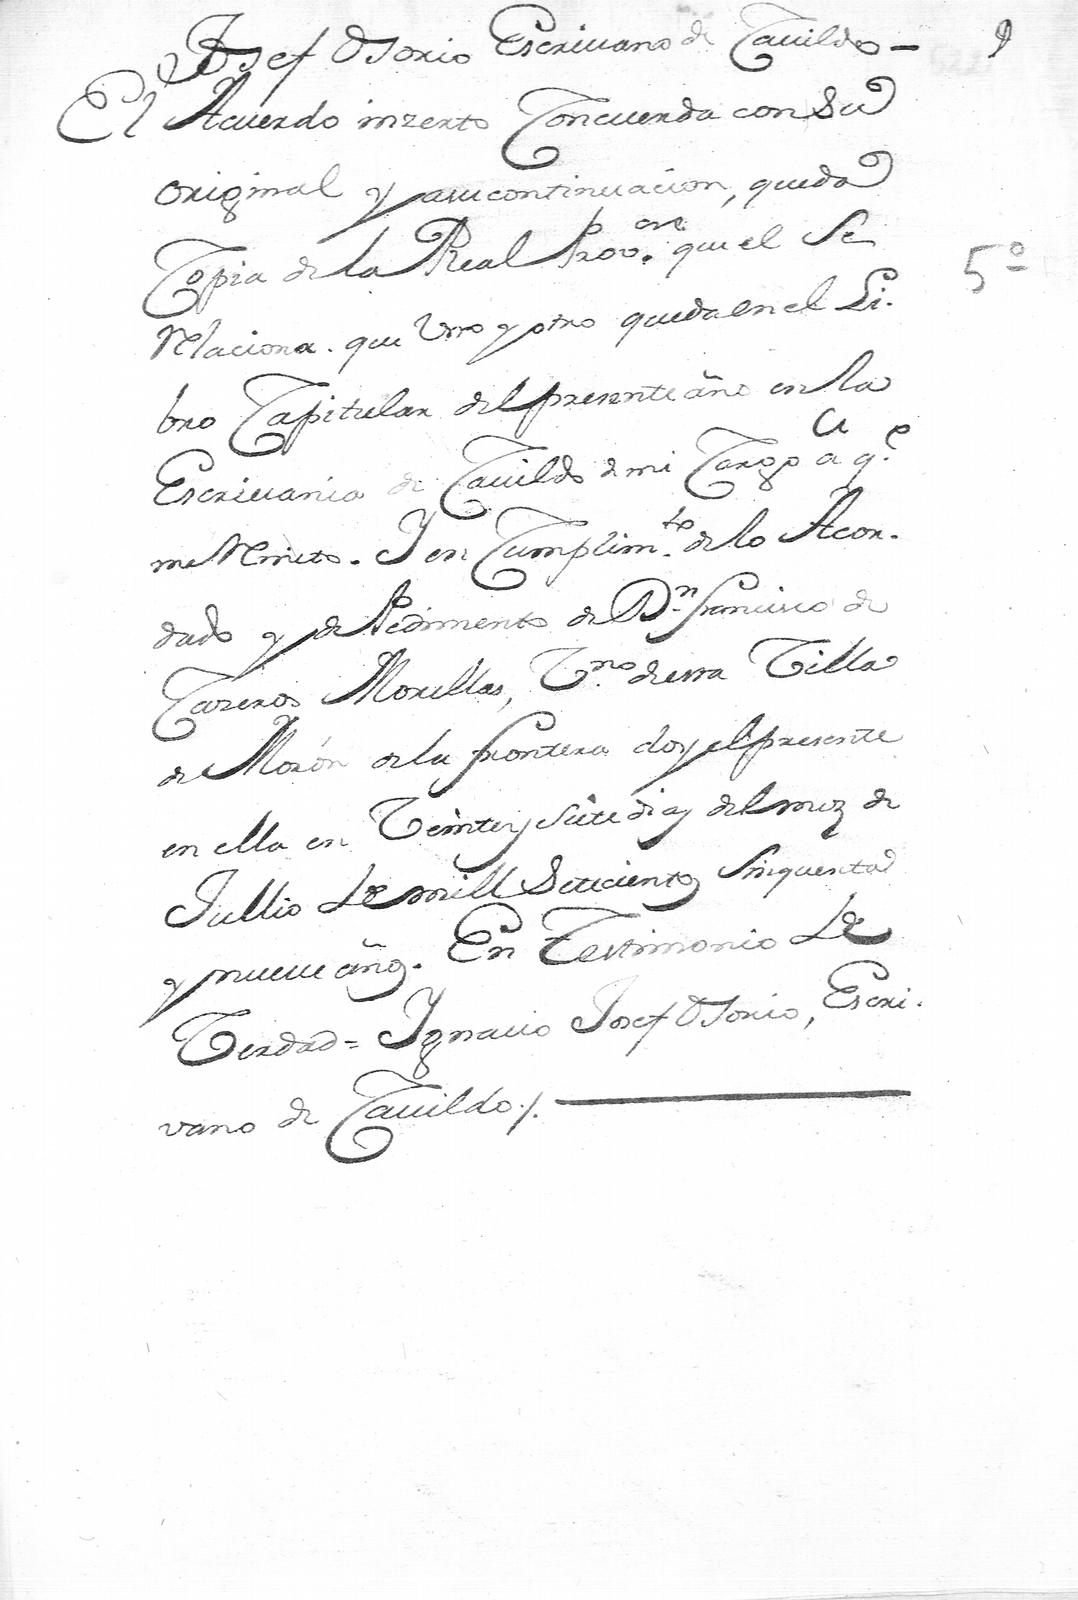 Josef Osorio Escriuano de Cauildo — 9
El Acuerdo inzerto Concuerda con Su
original y asucontinuacion, queda
Copia de la Real Prov.on que el Se
Relaciona. que Uno y otro queda en el Li-
bro Capitular del presente año en la
Escriuania de Cauildo de mi Cargo a q.e
me Remito. Y en Cumplim.to de lo Acor-
dado y de Pedimento de D.n francisco de
Cazeros Morillas, V.no de esta Villa
de Morón de la frontera doy el presente
en ella en Veinte y Siete dias del mez de
Jullio de mill Setecientos Sinquenta
y nueue años. En Testimonio de
Verdad = Ygnacio Josef Osorio, Escri-
vano de Cauildo./.
5º